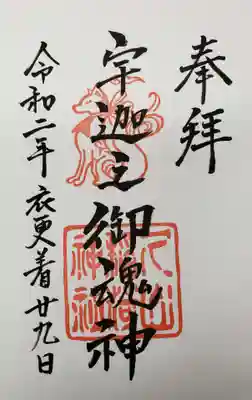 奉拝
宇迦之御魂神
令和二年 衣更着廿九日